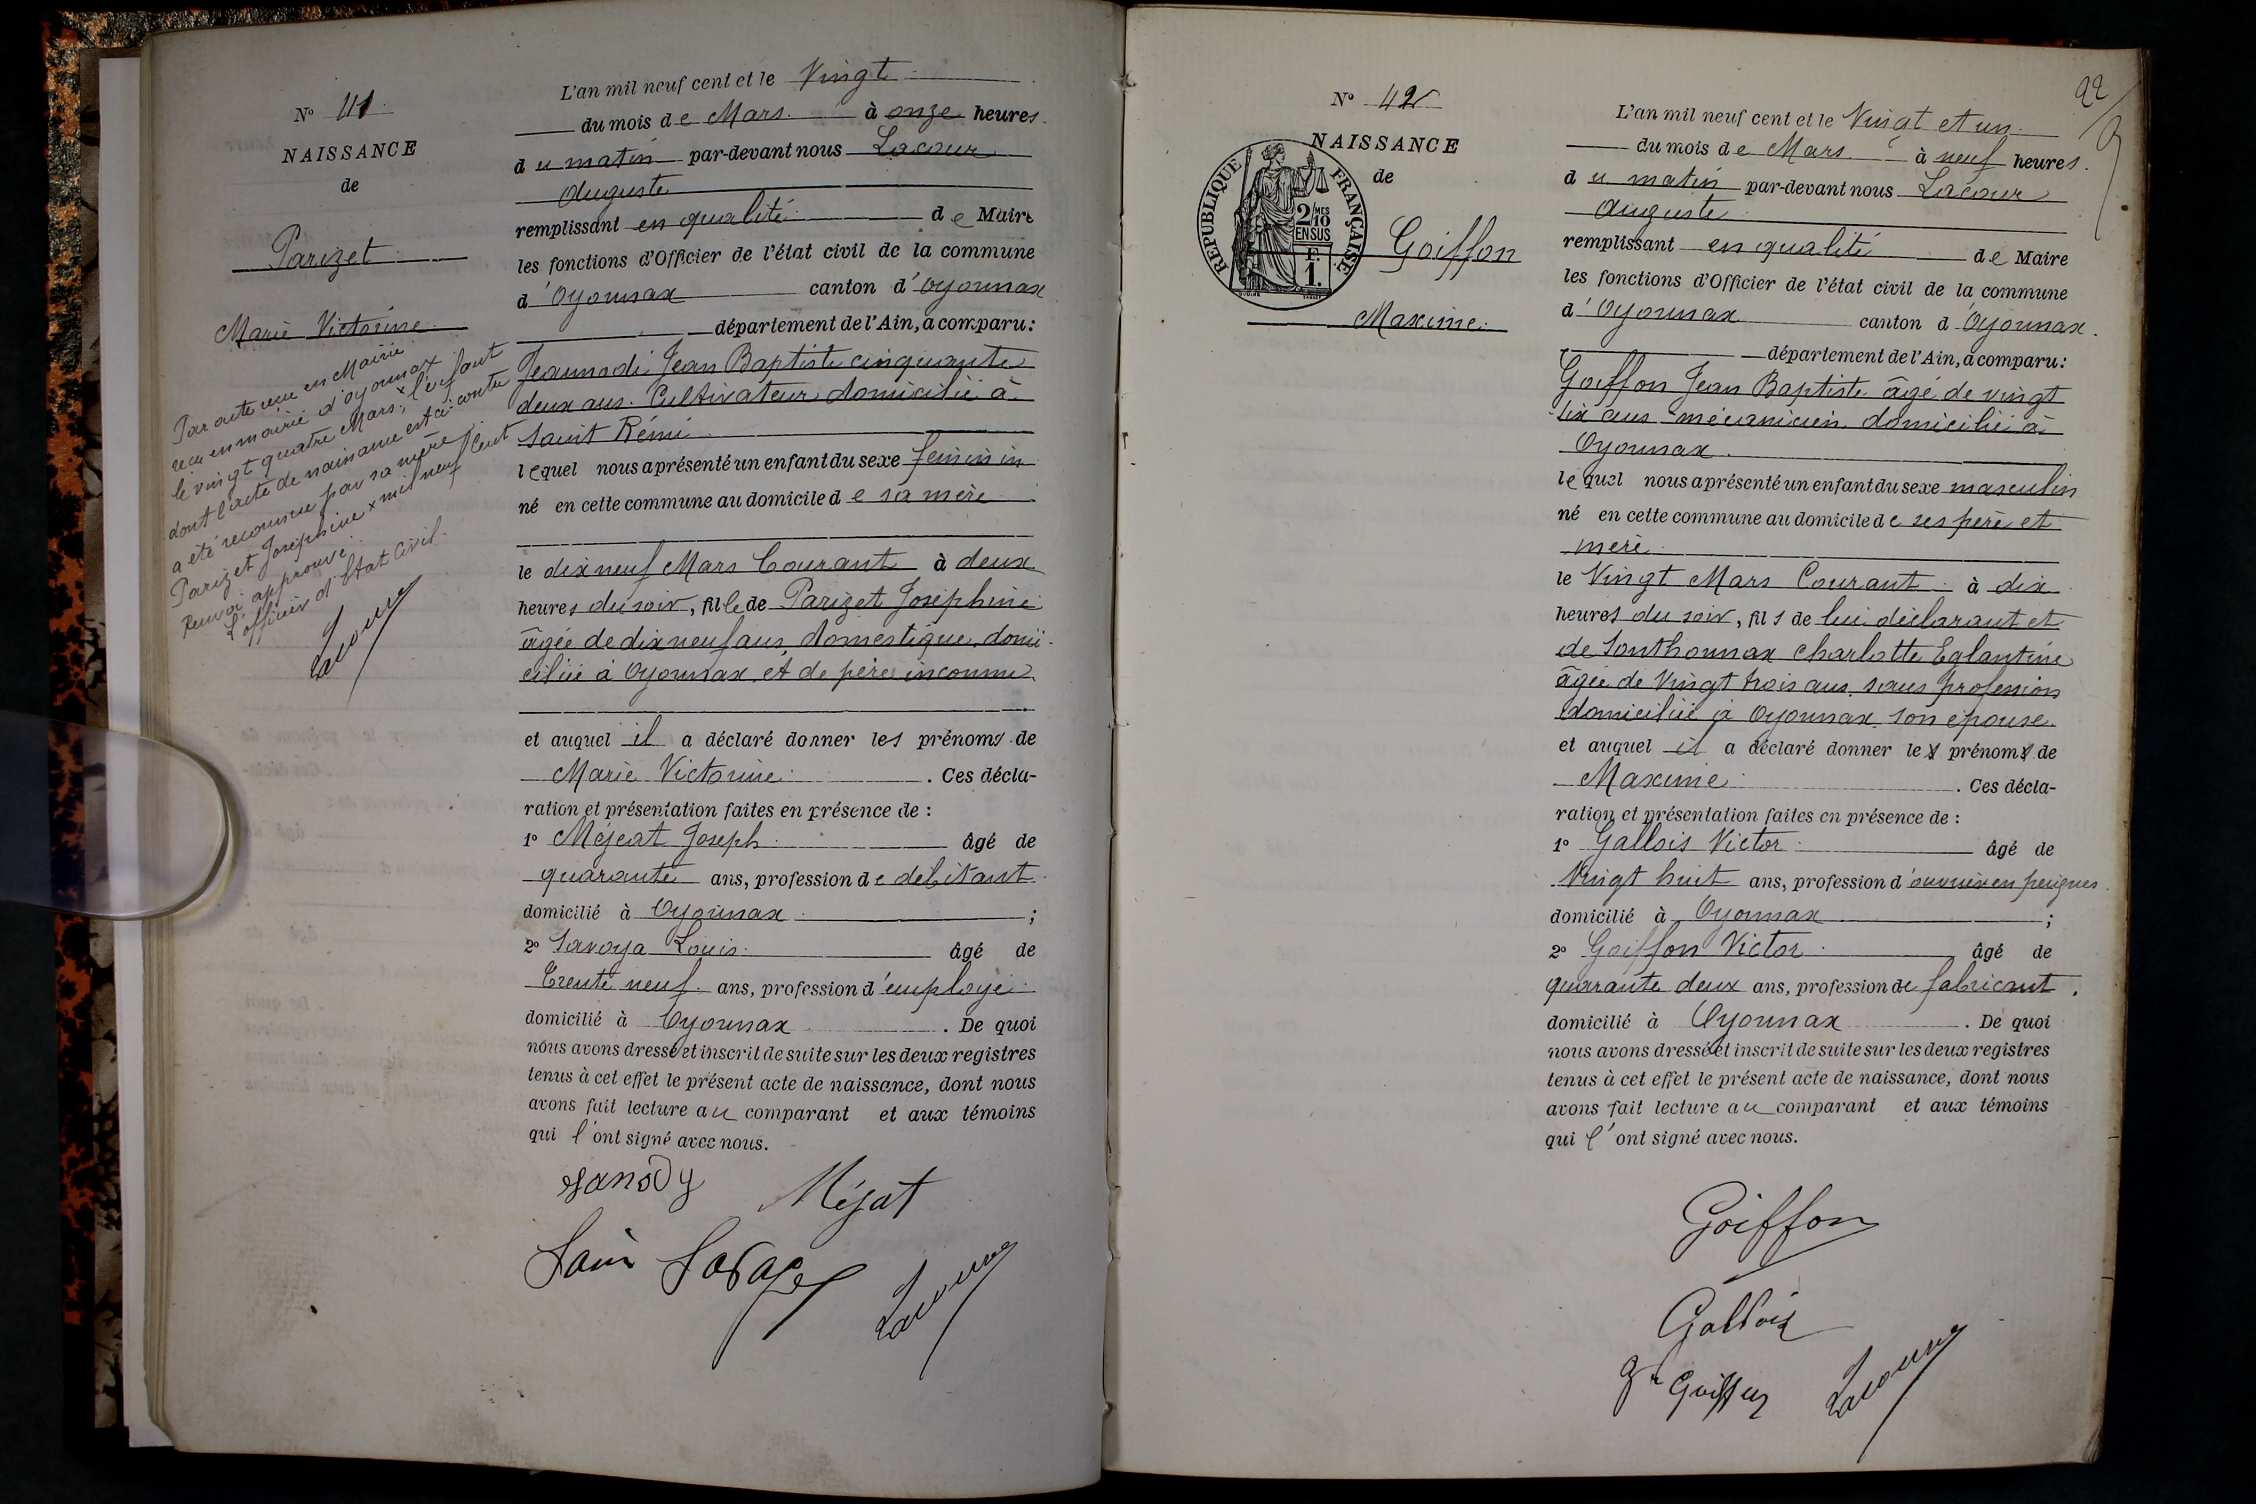 N° 41
NAISSANCE
de
Parizet
Marie Victorine
Par acte reçu en Mairie
reçu en mairie d'oyonnax
le vingt quatre Mars, x l'enfant
dont l'acte de naissance est ci-contre
a été reconnue par sa mère
Parizet Josephine x mil neuf cent
Renvoi approuvé.
L'officier d'Etat Civil.
Lacour
L'an mil neuf cent et le Vingt
du mois de Mars à onze heures.
du matin par-devant nous Lacour
Auguste
remplissant en qualité de Maire
les fonctions d'Officier de l'état civil de la commune
d'Oyonnax canton d'oyonnax
département de l'Ain, a comparu:
Jean Baptiste cinquante
deux ans. Cultivateur domicilié à
Saint Rémi
lequel nous a présenté un enfant du sexe feminin
né en cette commune au domicile de sa mère
le dix neuf Mars Courant à deux
heures du soir, fille de Parizet Josephine
âgée de dix neuf ans, domestique, domi-
ciliée à Oyonnax et de père inconnu
et auquel il a déclaré donner les prénoms de
Marie Victorine. Ces décla-
ration et présentation faites en présence de :
1° Méjeat Joseph âgé de
quarante ans, profession de debitant
domicilié à Oyonnax ;
2° Savoya Louis âgé de
Trente neuf ans, profession d'employé
domicilié à Oyonnax. De quoi
nous avons dressé et inscrit de suite sur les deux registres
tenus à cet effet le présent acte de naissance, dont nous
avons fait lecture au comparant et aux témoins
qui l'ont signé avec nous.
Méjat
Lacour
22
N° 42
NAISSANCE
de
REPUBLIQUE FRANÇAISE.
2/MES
10
EN SUS
F.
1.
Goiffon
Maxime
L'an mil neuf cent et le Vingt et un
du mois de Mars à neuf heures.
du matin par-devant nous Lacour
Auguste
remplissant en qualité de Maire
les fonctions d'Officier de l'état civil de la commune
d'Oyonnax canton d Oyonnax.
département de l'Ain, a comparu:
Goiffon Jean Baptiste âgé de vingt
six ans mécanicien domicilié à
Oyonnax
lequel nous a présenté un enfant du sexe masculin
né en cette commune au domicile de ses père et
mère
le Vingt Mars Courant à dix
heures du soir, fils de lui déclarant et
de Sonthonnax Charlotte Eglantine
âgée de Vingt trois ans, sans profession
domiciliée à Oyonnax son épouse.
et auquel il a déclaré donner les prénoms de
Maxime. Ces décla-
ration et présentation faites en présence de :
1° Gallois Victor âgé de
Vingt huit ans, profession d'ouvrier en peignes
domicilié à Oyonnax ;
2° Goiffon Victor âgé de
quarante deux ans, profession de fabricant.
domicilié à Oyonnax. De quoi
nous avons dressé et inscrit de suite sur les deux registres
tenus à cet effet le présent acte de naissance, dont nous
avons fait lecture au comparant et aux témoins
qui l'ont signé avec nous.
Goiffon
Gallois
Goiffon Lacour